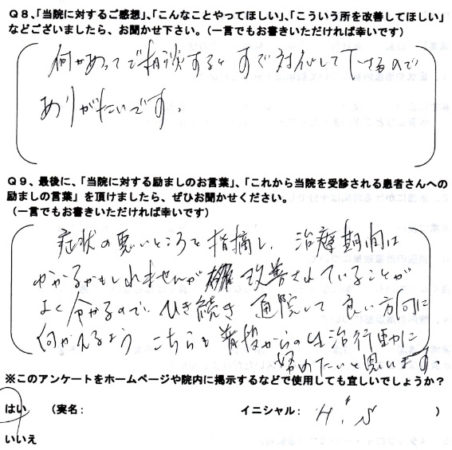 Q8、「当院に対するご感想」、「こんなことやってほしい」、「こういう所を改善してほしい」
などございましたら、お聞かせ下さい。(一言でもお書きいただければ幸いです)
何かあってご相談すると すぐ対応して下さるので
ありがたいです。
Q9、最後に、「当院に対する励ましのお言葉」、「これから当院を受診される患者さんへの
励ましの言葉」を頂けましたら、ぜひお聞かせください。
(一言でもお書きいただければ幸いです)
症状の悪いところを指摘し、治療期間は
かかるかもしれませんが 改善されていることが
よく分かるので、ひき続き 通院して 良い方向に
向かえるよう こちらも 普段からの生活行動に
努めたいと思います。
※このアンケートをホームページや院内に掲示するなどで使用しても宜しいでしょうか?
はい (実名: イニシャル: H.S )
いいえ